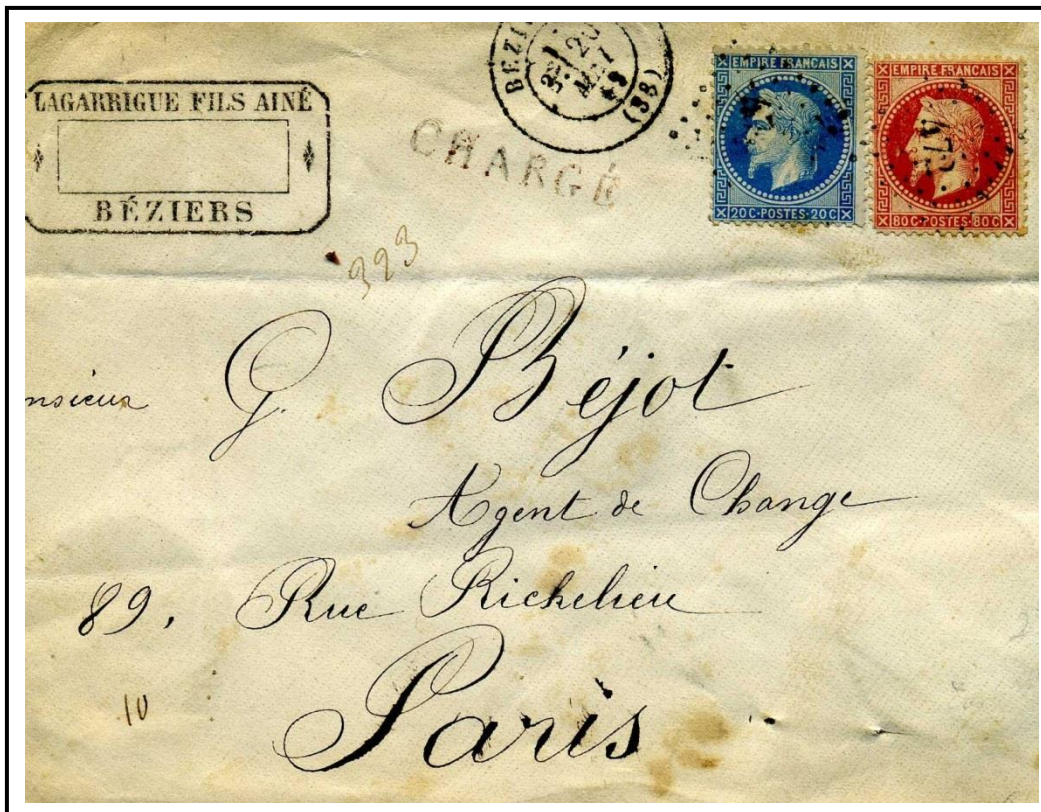 LAGARRIGUE FILS AINÉ
BÉZIERS
CHARGÉ
BEZI
(33)
EMPIRE FRANÇAIS
20C·POSTES·20C
EMPIRE FRANÇAIS
80C·POSTES·80C
323
nsieur G. Béjot
Agent de Change
89, Rue Richelieu
10
Paris